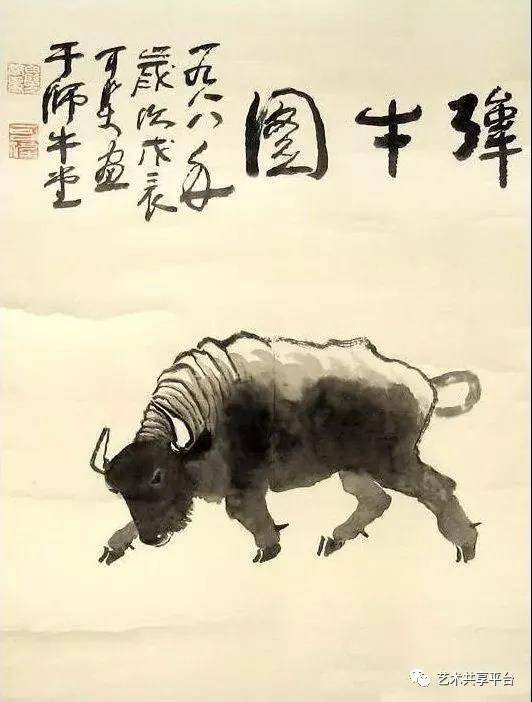 犟牛图
一九八八年
歲次戊辰
可染画
于师牛堂
艺术共享平台